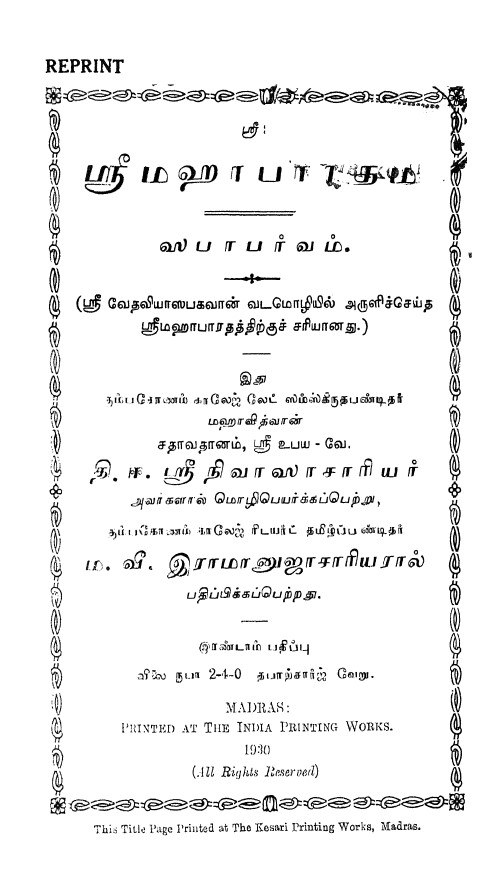 REPRINT
ஸ்ரீ:
ஸ்ரீமஹாபாரதம்
ஸபாபர்வம்.
(ஸ்ரீ வேதவியாஸபகவான் வடமொழியில் அருளிச்செய்த
ஸ்ரீமஹாபாரதத்திற்குச் சரியானது.)
இது
கும்பகோணம் காலேஜ் லேட் ஸம்ஸ்கிருதபண்டிதர்
மஹாவித்வான்
சதாவதானம், ஸ்ரீ உபய - வே.
தி. ஈ. ஸ்ரீநிவாஸாசாரியர்
அவர்களால் மொழிபெயர்க்கப்பெற்று,
கும்பகோணம் காலேஜ் ரிடயர்ட் தமிழ்ப்பண்டிதர்
ம. வீ. இராமானுஜாசாரியரால்
பதிப்பிக்கப்பெற்றது.
இரண்டாம் பதிப்பு
விலை ரூபா 2-4-0 தபாற்சார்ஜ் வேறு.
MADRAS:
PRINTED AT THE INDIA PRINTING WORKS.
1930
(All Rights Reserved)
This Title Page Printed at The Kesari Printing Works, Madras.